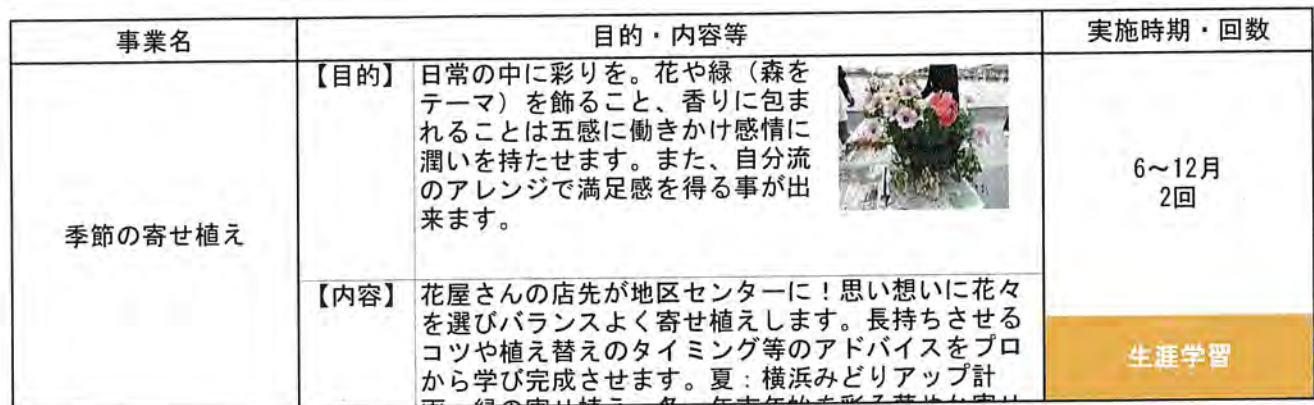 事業名
目的・内容等
実施時期・回数
季節の寄せ植え
【目的】 日常の中に彩りを。花や緑（森を
テーマ）を飾ること、香りに包ま
れることは五感に働きかけ感情に
潤いを持たせます。また、自分流
のアレンジで満足感を得る事が出
来ます。
6～12月
2回
【内容】 花屋さんの店先が地区センターに！思い想いに花々
を選びバランスよく寄せ植えします。長持ちさせる
コツや植え替えのタイミング等のアドバイスをプロ
から学び完成させます。夏：横浜みどりアップ計
生涯学習